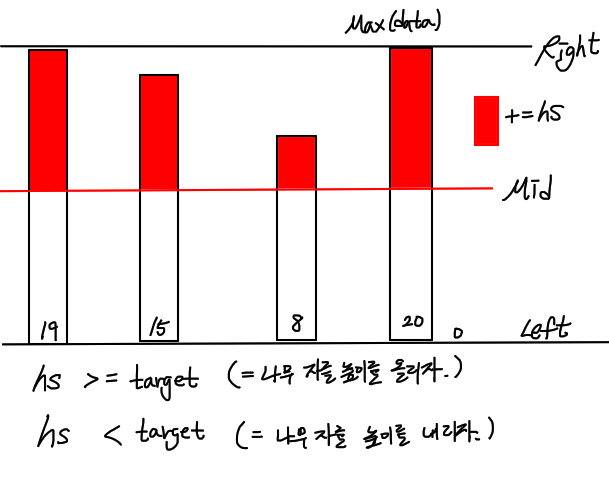 Max(data)
Right
+=hs
Mid
19 15 8 20 0 Left
hs >= target (= 나무 자를 높이를 올리자.)
hs < target (= 나무 자를 높이를 내리자.)